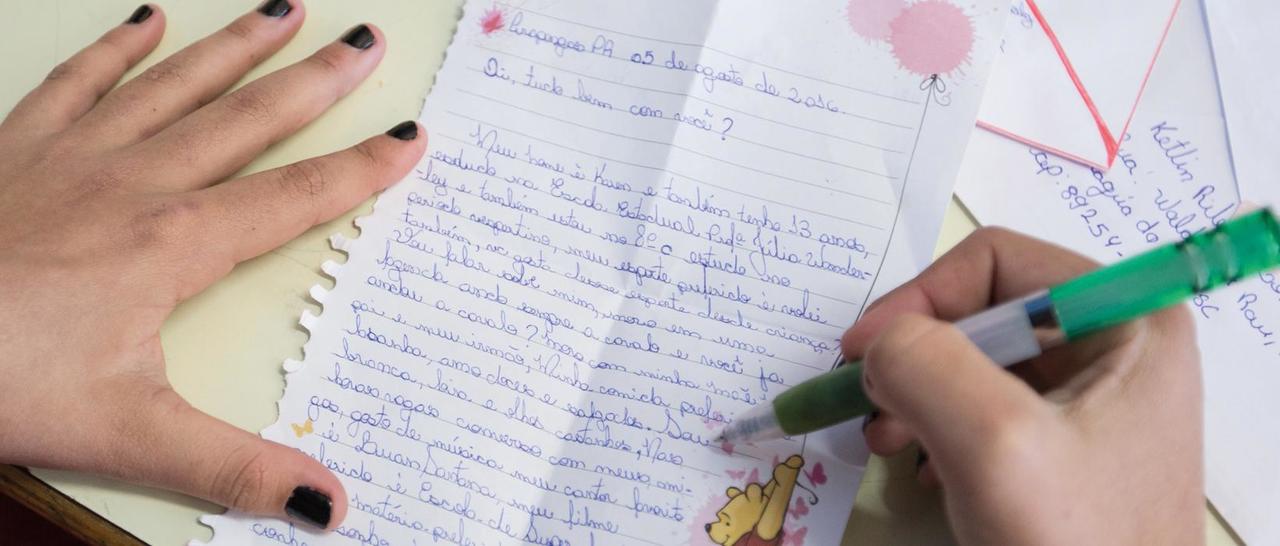 PR 05 de agosto de 2016.
Oi, tudo bem com você?
Meu nome é Karen e também tenho 13 anos,
estudo na Escola Estadual Profª Júlia Wander-
ley e também estou no 8º c estudo no
período vespertino, meu esporte preferido é volei
também, vc gosta desse esporte desde criança?
Vou falar sobre mim, moro em uma
fazenda ando sempre a cavalo e você ja
andou a cavalo? Moro com minha mãe,
pai e meu irmão, Minha comida preferi
lasanha, amo doces e salgados. Sou
branca, e olhos castanhos, Nas
horas vagas converso com meus ami-
gos, gosto de música meu cantor favorito
é Luan Santana, meu filme
preferido é Escola de
matéria prefer
sonho
Ketlin
Rua:
cep: 89254-
SC